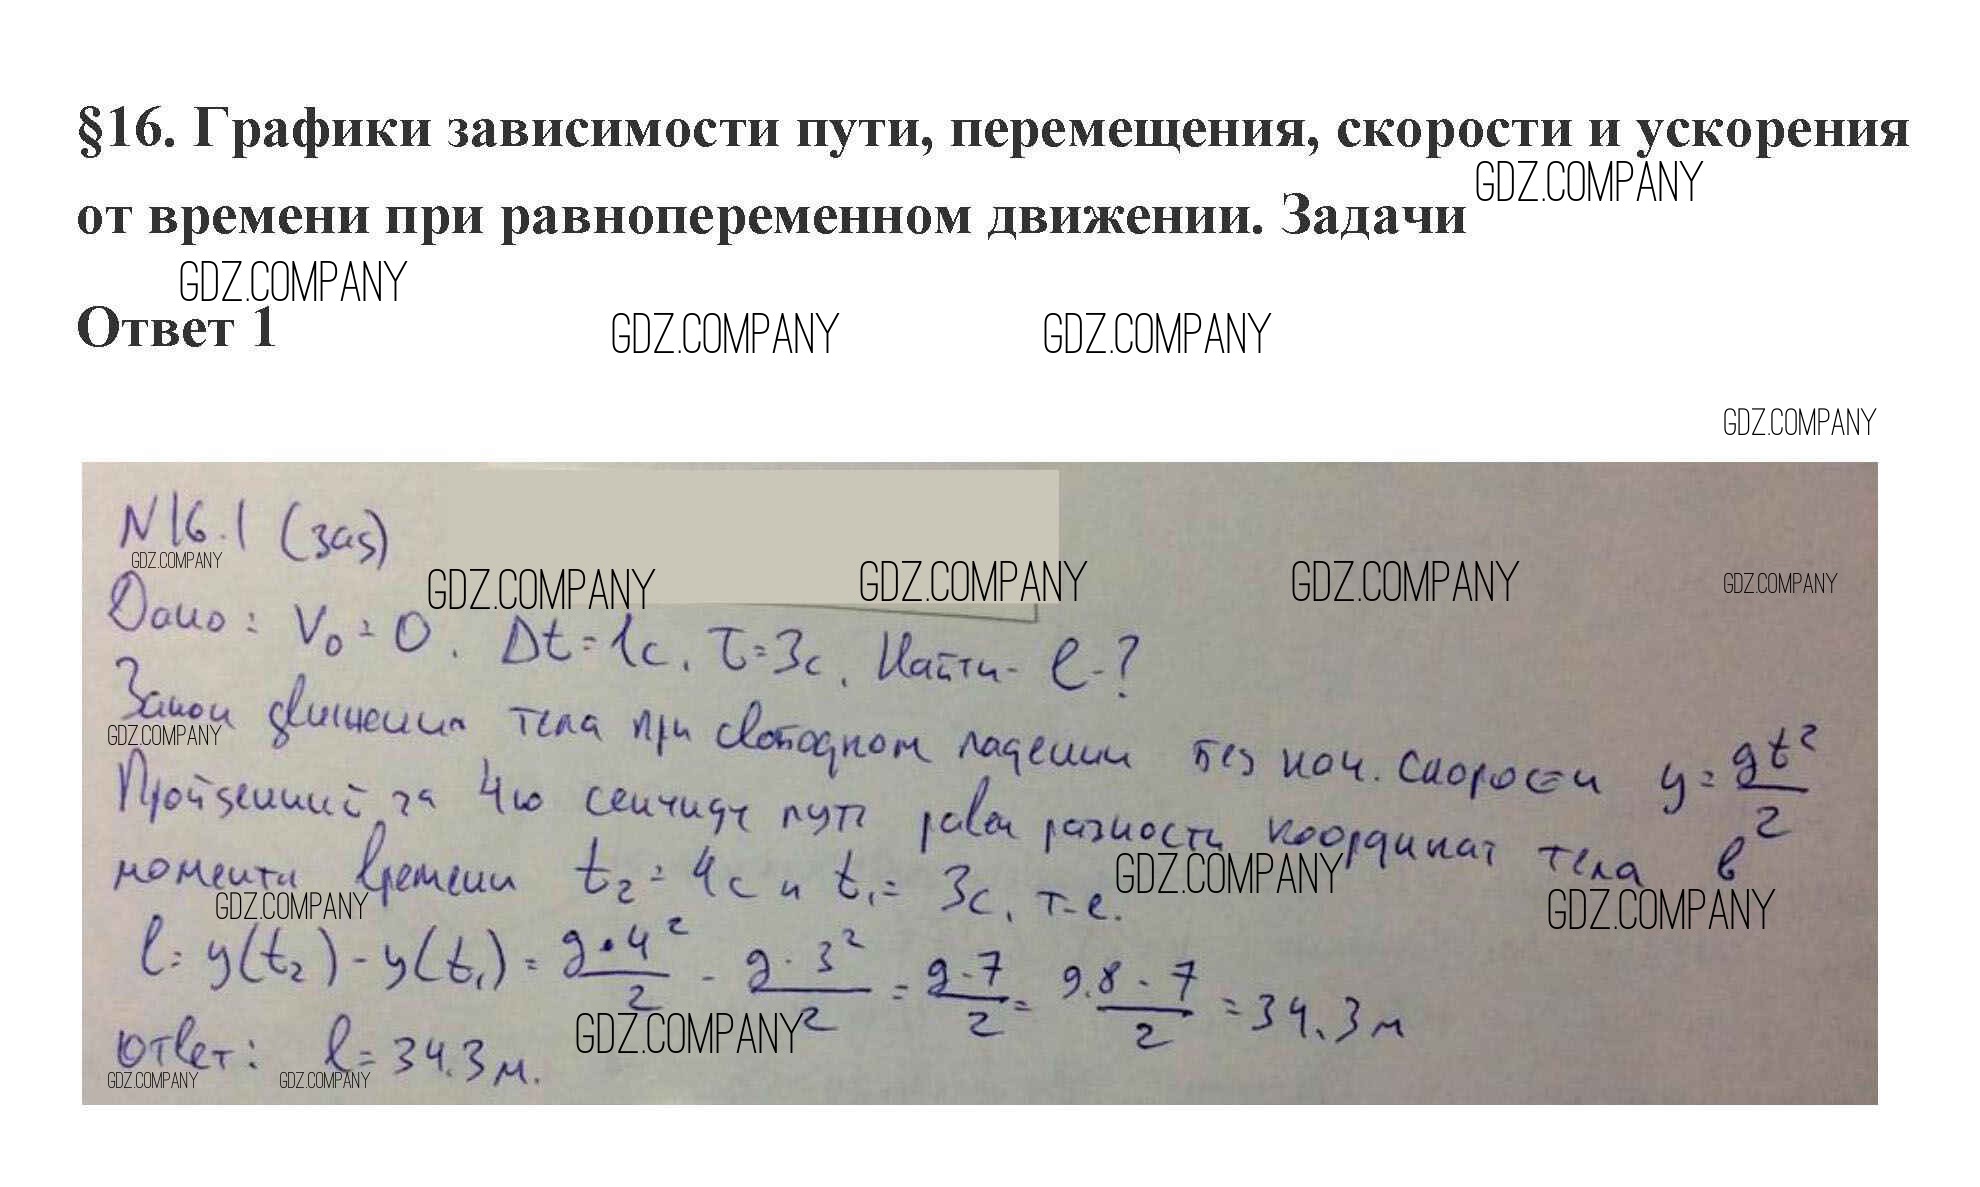 §16. Графики зависимости пути, перемещения, скорости и ускорения
GDZ.COMPANY
от времени при равнопеременном движении. Задачи
GDZ.COMPANY
Ответ 1
GDZ.COMPANY GDZ.COMPANY
GDZ.COMPANY
N16.1 (зад)
GDZ.COMPANY GDZ.COMPANY GDZ.COMPANY GDZ.COMPANY GDZ.COMPANY
Дано: V₀ = 0. Δt = 1с. τ = 3с. Найти - l - ?
Закон движения тела при свободном падении без нач. скорости y = gt²/2
GDZ.COMPANY
Пройденный за 4ю секунду путь равен разности координат тела в
GDZ.COMPANY
моменты времени t₂ = 4с и t₁ = 3с, т.е.
GDZ.COMPANY GDZ.COMPANY
l = y(t₂) - y(t₁) = g·4²/2 - g·3²/2 = g·7/2 = 9.8·7/2 = 34.3 м
GDZ.COMPANY
Ответ: l = 34.3 м.
GDZ.COMPANY GDZ.COMPANY